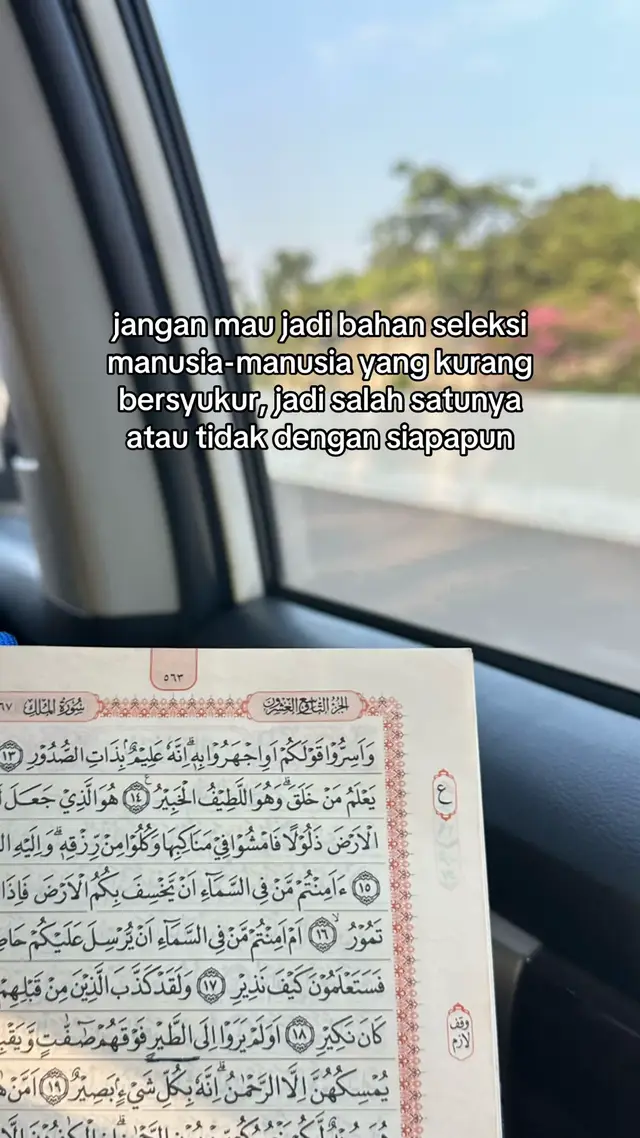 jangan mau jadi bahan seleksi
manusia-manusia yang kurang
bersyukur, jadi salah satunya
atau tidak dengan siapapun
٥٦٣
الجزء التاسع والعشرون
سورة الملك ٦٧
وَاَسِرُّوْا قَوْلَكُمْ اَوِ اجْهَرُوْا بِهٖۗ اِنَّهٗ عَلِيْمٌۢ بِذَاتِ الصُّدُوْرِ ١٣
يَعْلَمُ مَنْ خَلَقَۗ وَهُوَ اللَّطِيْفُ الْخَبِيْرُ ١٤ هُوَ الَّذِيْ جَعَلَ
ع
الْاَرْضَ ذَلُوْلًا فَامْشُوْا فِيْ مَنَاكِبِهَا وَكُلُوْا مِنْ رِّزْقِهٖۗ وَاِلَيْهِ
١٥ ءَاَمِنْتُمْ مَّنْ فِى السَّمَاۤءِ اَنْ يَّخْسِفَ بِكُمُ الْاَرْضَ فَاِذَا
تَمُوْرُۙ ١٦ اَمْ اَمِنْتُمْ مَّنْ فِى السَّمَاۤءِ اَنْ يُّرْسِلَ عَلَيْكُمْ
فَسَتَعْلَمُوْنَ كَيْفَ نَذِيْرِ ١٧ وَلَقَدْ كَذَّبَ الَّذِيْنَ مِنْ قَبْلِهِمْ
كَانَ نَكِيْرِ ١٨ اَوَلَمْ يَرَوْا اِلَى الطَّيْرِ فَوْقَهُمْ صٰۤفّٰتٍ وَّيَقْبِ
وقف لازم
يُمْسِكُهُنَّ اِلَّا الرَّحْمٰنُۗ اِنَّهٗ بِكُلِّ شَيْءٍۢ بَصِيْرٌ ١٩ اَمَّنْ